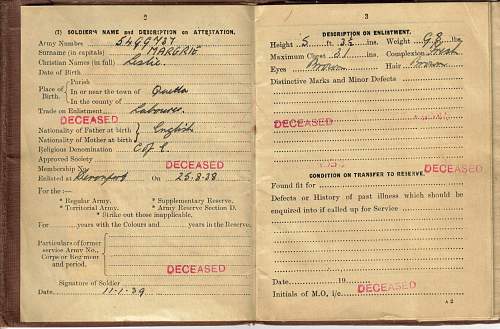 2
(1) SOLDIER'S NAME and DESCRIPTION on ATTESTATION.
Army Number 5499737
Surname (in capitals) MARGRIE
Christian Names (in full) Leslie.
Date of Birth
Place of Birth. { Parish
In or near the town of Quetta
In the county of
Trade on Enlistment Labourer
DECEASED
Nationality of Father at birth } English
Nationality of Mother at birth
Religious Denomination C of E.
Approved Society
DECEASED
Membership No.
Enlisted at Devonport On 25.8.38
For the :—
* Regular Army. * Supplementary Reserve.
* Territorial Army. * Army Reserve Section D.
* Strike out those inapplicable.
For years with the Colours and years in the Reserve.
Particulars of former
service Army No.,
Corps or Regiment
and period.
DECEASED
Signature of Soldier
Date 11-1-39
3
DESCRIPTION ON ENLISTMENT.
Height 5 ft. ins. Weight lbs.
Maximum Chest ins. Complexion Fresh
Eyes Brown Hair Brown
Distinctive Marks and Minor Defects
DECEASED
DECEASED
CONDITION ON TRANSFER TO RESERVE.
Found fit for
Defects or History of past illness which should be
enquired into if called up for Service
Date 19
DECEASED
Initials of M.O. i/c
A 2